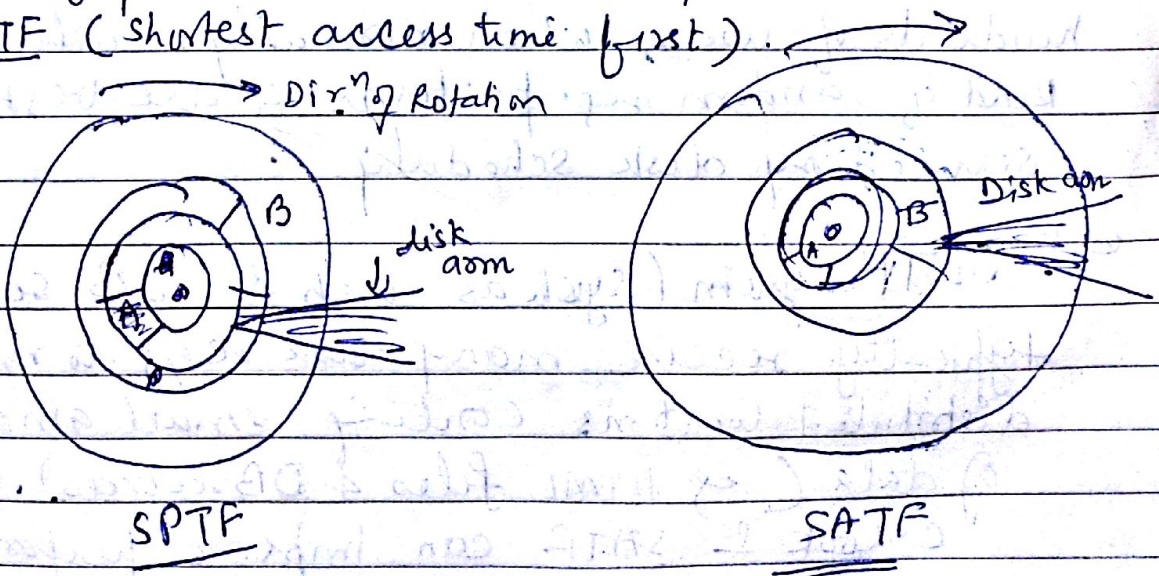 TF (shortest access time first).
Dirⁿ of Rotation
B
disk
arm
A
SPTF
Disk arm
B
A
SATF